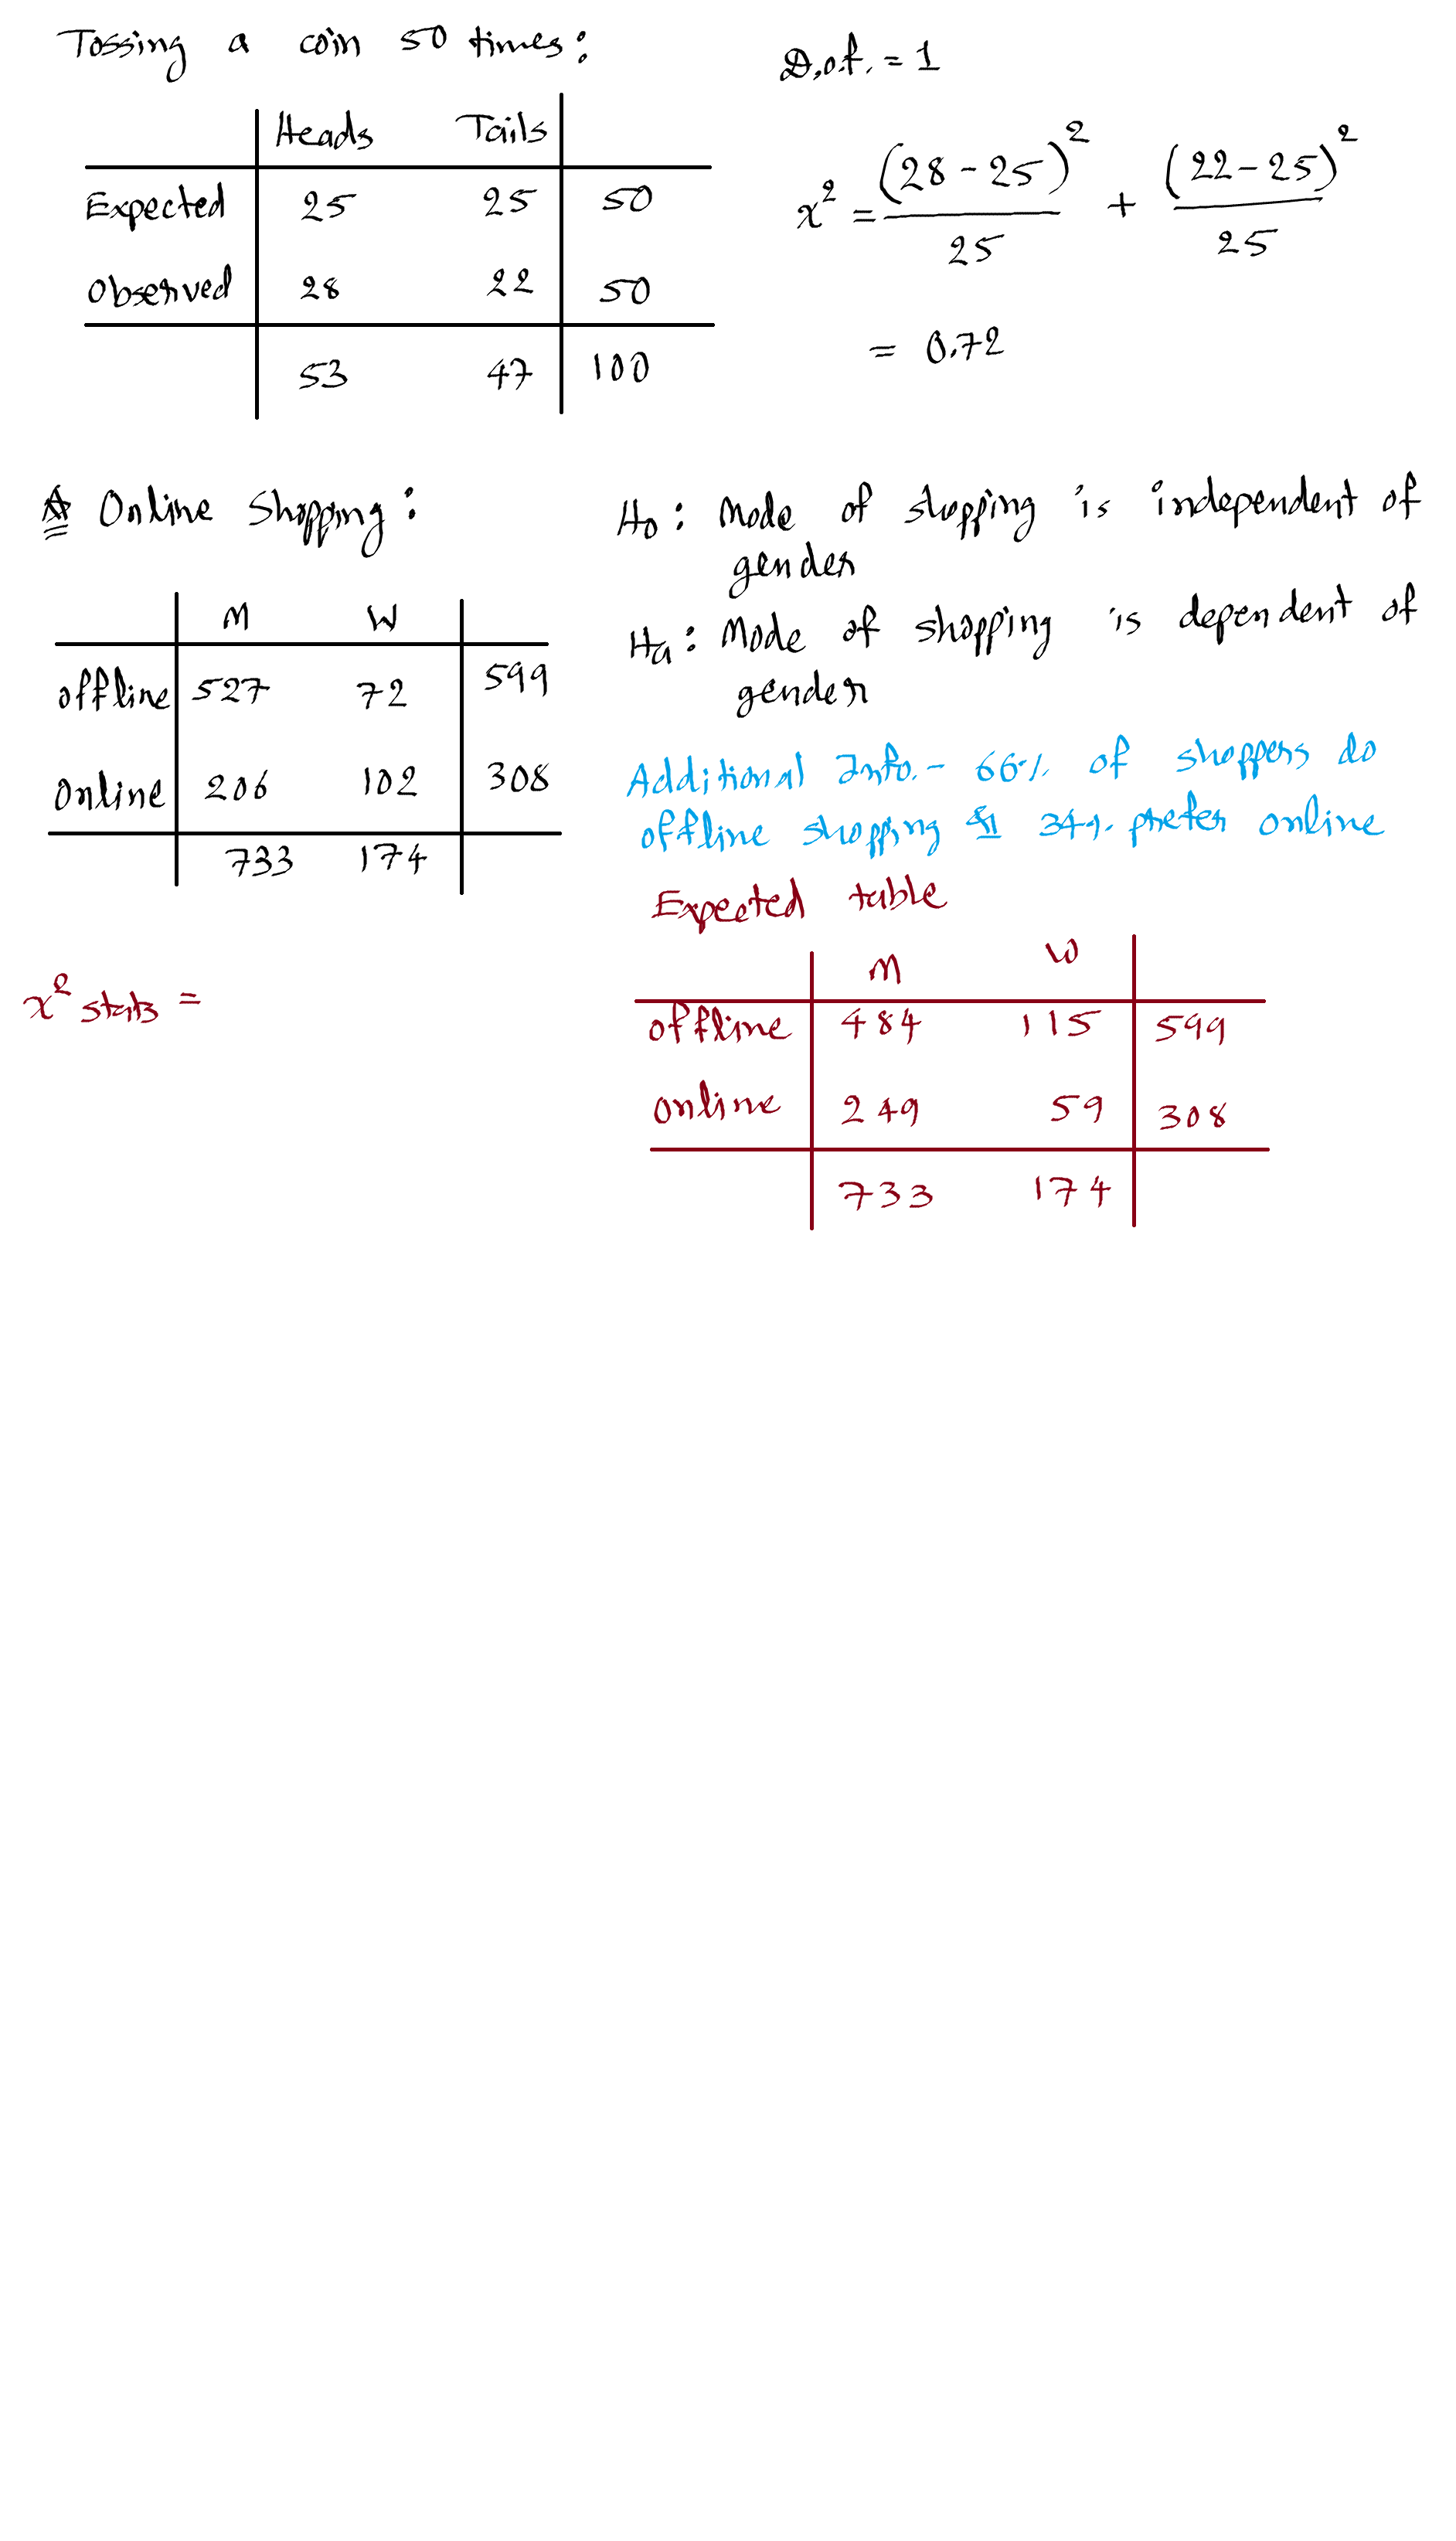 Tossing a coin 50 times:
Heads Tails
Expected 25 25 50
Observed 28 22 50
53 47 100
D.o.f. = 1
x² = (28-25)²/25 + (22-25)²/25
= 0.72
Online Shopping:
M W
offline 527 72 599
Online 206 102 308
733 174
H₀: Mode of shopping is independent of
gender
Ha: Mode of shopping is dependent of
gender
Additional Info.- 66% of shoppers do
offline shopping & 34% prefer online
Expected table
M W
offline 484 115 599
online 249 59 308
733 174
x² stats =